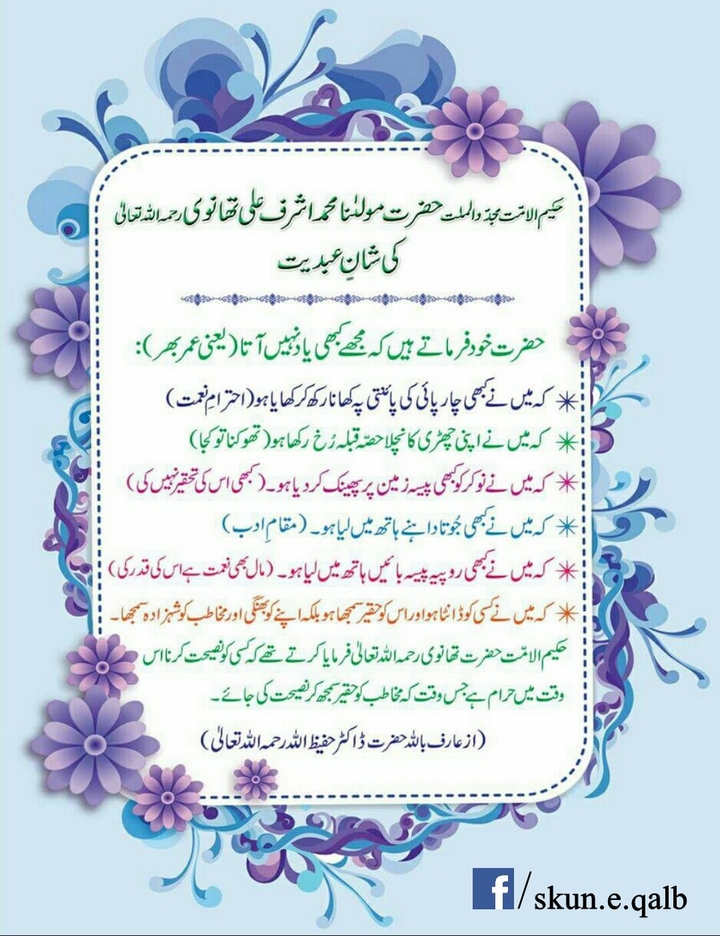 حکیم الامّت مجدّد الملت حضرت مولٰنا محمد اشرف علی تھانوی رحمہ اللہ تعالیٰ
کی شانِ عبدیت
حضرت خود فرماتے ہیں کہ مجھے کبھی یاد نہیں آتا (یعنی عمر بھر):
✳ کہ میں نے کبھی چارپائی کی پائنتی پہ کھانا رکھ کر کھایا ہو (احترامِ نعمت)
✳ کہ میں نے اپنی چھڑی کا نچلا حصّہ قبلہ رُخ رکھا ہو (تھوکنا تو کجا)
✳ کہ میں نے نوکر کو کبھی پیسہ زمین پر پھینک کر دیا ہو۔ (کبھی اس کی تحقیر نہیں کی)
✳ کہ میں نے کبھی جُوتا داہنے ہاتھ میں لیا ہو۔ (مقامِ ادب)
✳ کہ میں نے کبھی روپیہ پیسہ بائیں ہاتھ میں لیا ہو۔ (مال بھی نعمت ہے اس کی قدر کی)
✳ کہ میں نے کسی کو ڈانٹا ہو اور اس کو حقیر سمجھا ہو بلکہ اپنے کو بھنگی اور مخاطب کو شہزادہ سمجھا۔
حکیم الامّت حضرت تھانوی رحمہ اللہ تعالیٰ فرمایا کرتے تھے کہ کسی کو نصیحت کرنا اس
وقت میں حرام ہے جس وقت کہ مخاطب کو حقیر سمجھ کر نصیحت کی جائے۔
(از عارف باللہ حضرت ڈاکٹر حفیظ اللہ رحمہ اللہ تعالیٰ)
f/skun.e.qalb